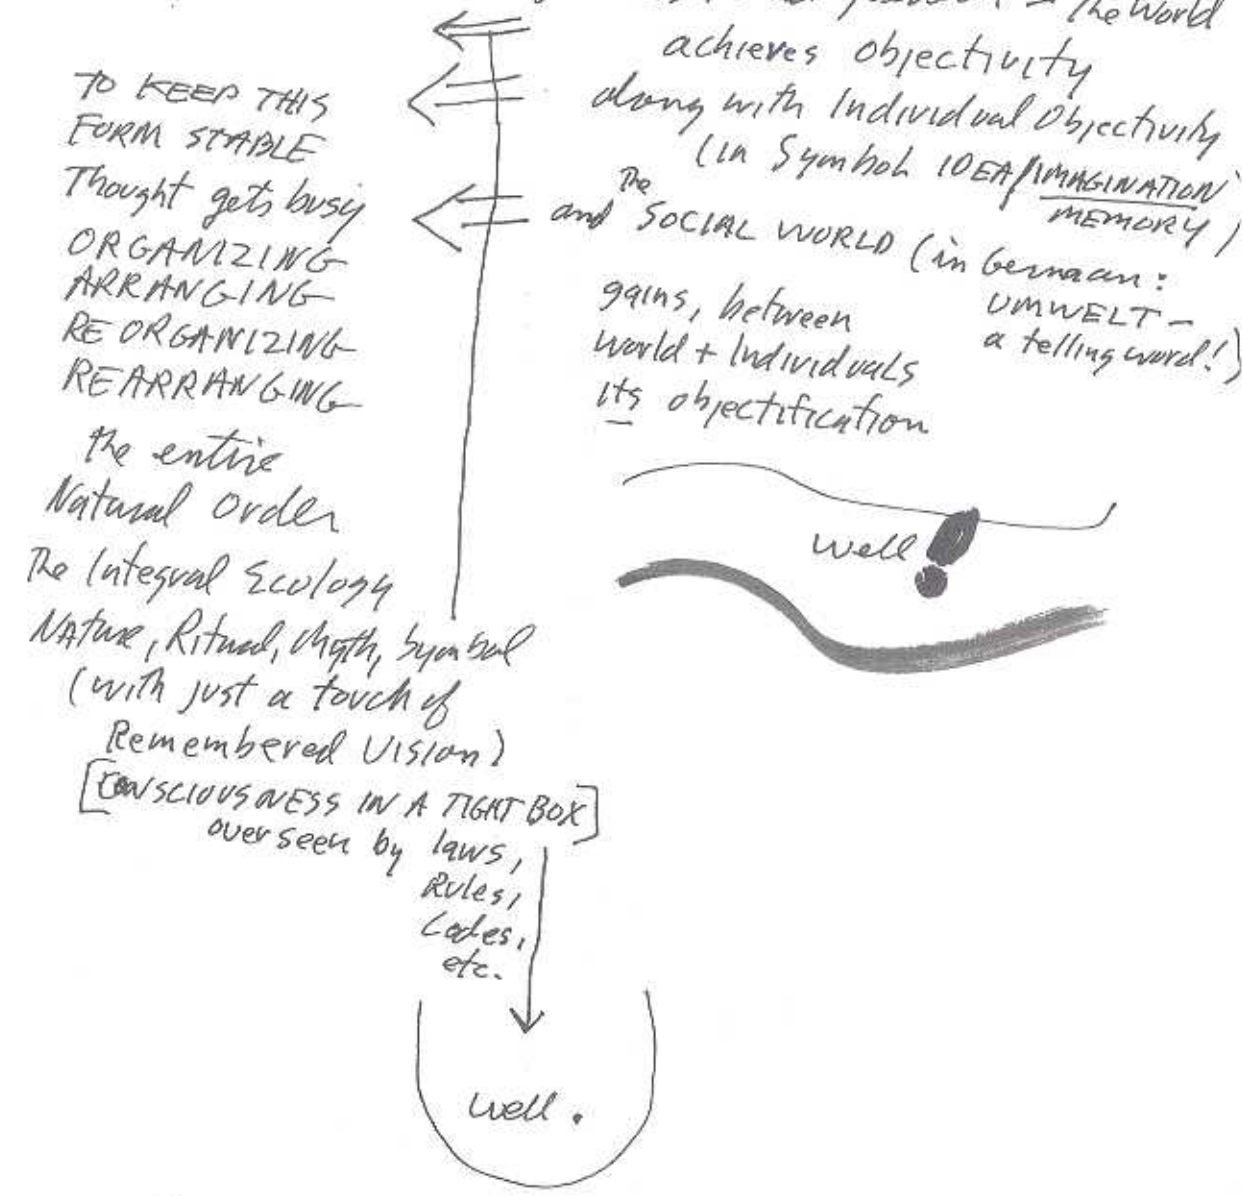 The World
achieves objectivity
along with Individual Objectivity
(in Symbol IDEA/IMAGINATION
MEMORY)
and The SOCIAL WORLD (in German:
UMWELT -
a telling word!)
gains, between
world + Individuals
its objectification
well
TO KEEP THIS
FORM STABLE
Thought gets busy
ORGANIZING
ARRANGING
REORGANIZING
REARRANGING
the entire
Natural Order
The Integral Ecology
Nature, Ritual, Myth, Symbol
(with just a touch of
Remembered Vision)
[CONSCIOUSNESS IN A TIGHT BOX]
overseen by laws,
Rules,
Codes,
etc.
well.